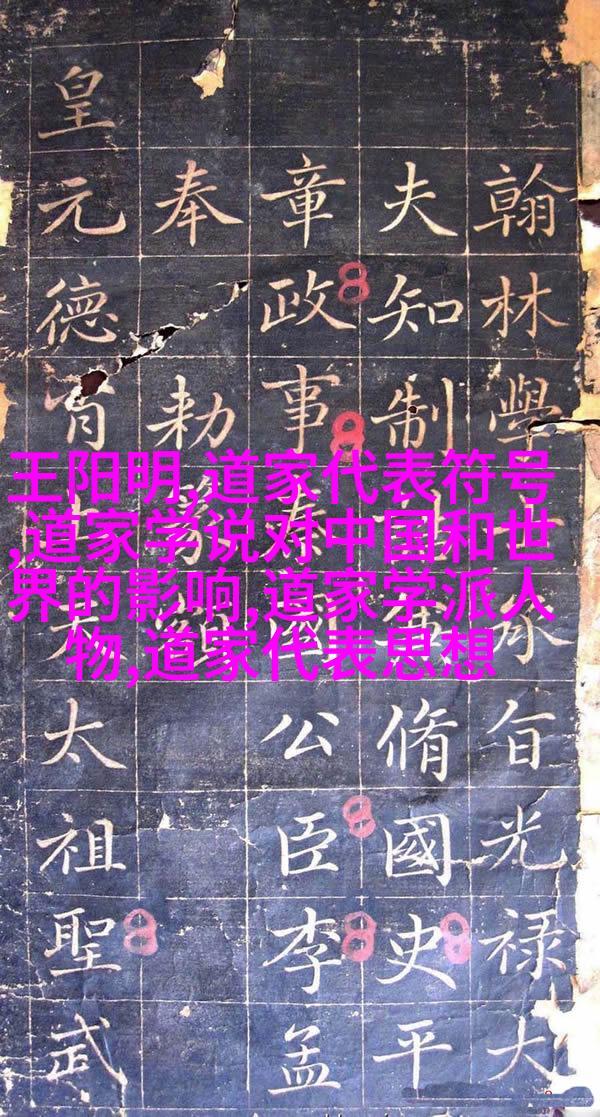 王阳明,道家代表符号
,道家学说对中国和世
界的影响,道家学派人
物,道家代表思想
翰林學士承旨光禄大
夫知制脩國史平
章政事秦國公臣李孟
奉勅額
皇元德太祖聖武